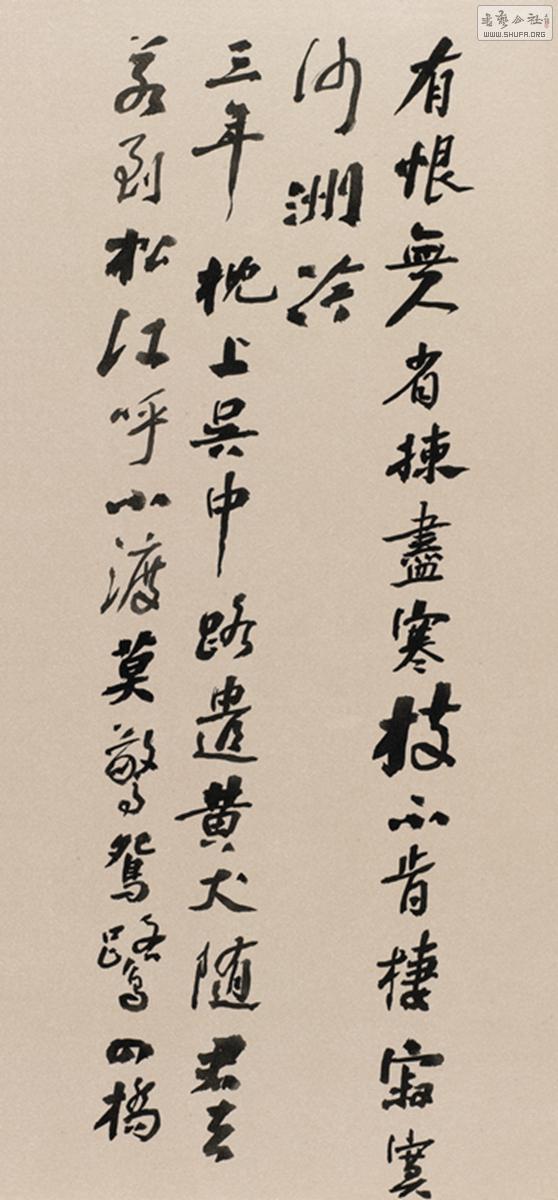 有恨無人省揀盡寒枝不肯棲寂寞
沙洲冷
三年枕上吳中路遣黄犬随君去
若到松江呼小渡莫驚鴛鷺四橋
書藝公社
WWW.SHUFA.ORG